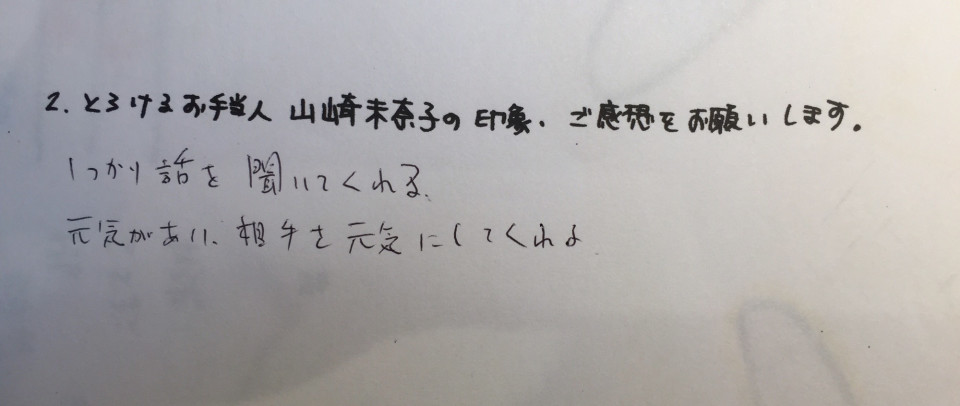 2. とろけるお手当人 山崎未奈子の印象、ご感想をお願いします。
しっかり話を聞いてくれる。
元気があり、相手を元気にしてくれる